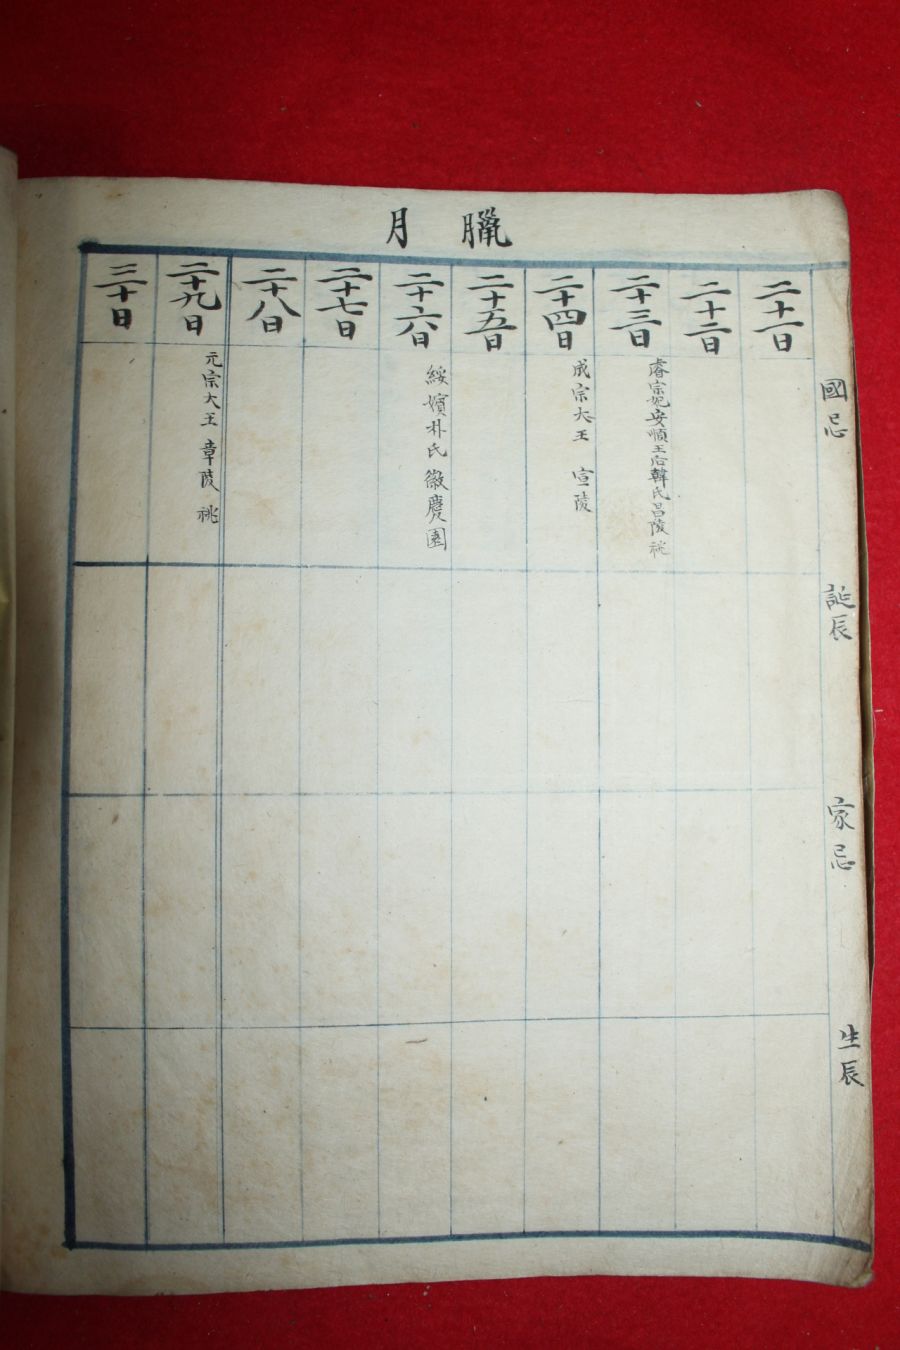 臘月
國忌
誕辰
家忌
生辰
二十一日
二十二日
二十三日
睿宗妃安順王后韓氏昌陵祧
二十四日
成宗大王 宣陵
二十五日
二十六日
綏嬪朴氏徽慶園
二十七日
二十八日
二十九日
元宗大王 章陵 祧
三十日